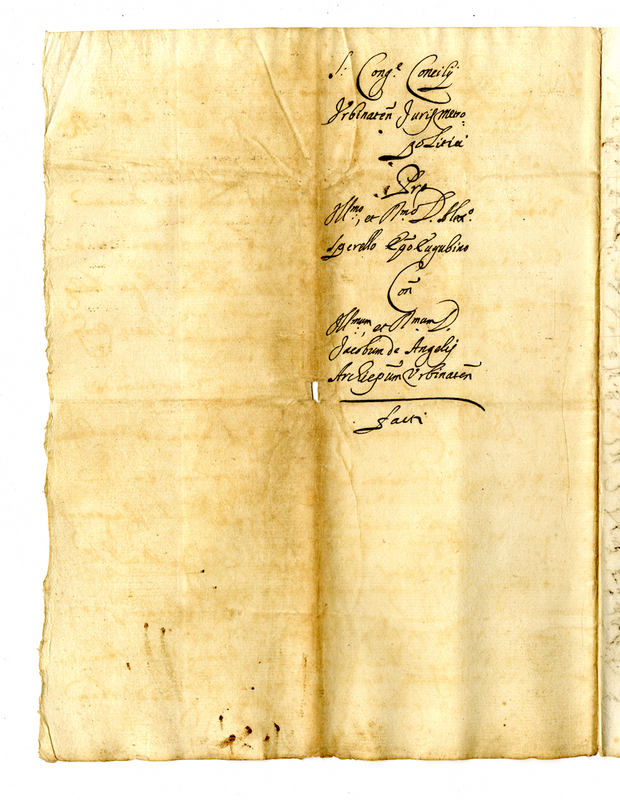 S. Cong.e Concilij
Urbinaten̄ Juris metro
politici
Pro
Ill.mo, et R.mo D. Alex.o
Sperello Ep̄o Eugubino
Con̄
Ill.mum, et R.mum D.
Jacobum de Angelis
Archiep̄um Urbinaten̄
facti